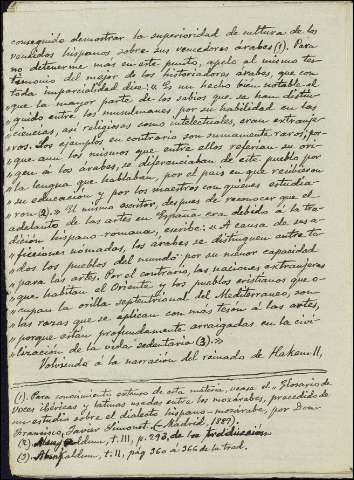 conseguido demostrar la superioridad de cultura de los
vencidos hispanos sobre sus vencedores árabes (1). Para
no detenerme mas en este punto, apelo al mismo tes-
timonio del mejor de los historiadores árabes, que con
toda imparcialidad dice: « Es un hecho bien notable el
» que la mayor parte de los sabios que se han distin-
» guido entre los musulmanes por su habilidad en las
» ciencias, asi religiosas como intelectuales, eran extranje-
» ros. Los ejemplos en contrario son sumamente raros, por-
» que aun los mismos que entre ellos referian su ori-
» gen á los árabes, se diferenciaban de este pueblo por
» la lengua que hablaban, por el pais en que recibieron
» su educacion y por los maestros con quienes estudia-
» ron (2). » El mismo escritor, despues de reconocer que el
adelanto de las artes en España era debido á la tra-
dicion hispano-romana, escribe: « A causa de sus a-
» ficciones nómadas, los árabes se distinguen entre to-
» dos los pueblos del mundo por su menor capacidad
» para las artes. Por el contrario, las naciones extranjeras
» que habitan el Oriente y los pueblos cristianos que o-
» cupan la orilla septentrional del Mediterraneo, son
» las razas que se aplican con más teson á las artes,
» porque están profundamente arraigadas en la civi-
» lizacion de la vida sedentaria (3). »
Volviendo á la narración del reinado de Hakem II,
(1). Para conocimiento extenso de esta materia, vease el « Glosario de
voces ibéricas y latinas usadas entre los mozárabes, precedido de
un estudio sobre el dialecto hispano-mozárabe, por Don
Francisco Javier Simonet. (Madrid, 1889).
(2). t. III, p. 296, de la traduccion
(3). t. II, pág 360 á 366 de la trad.